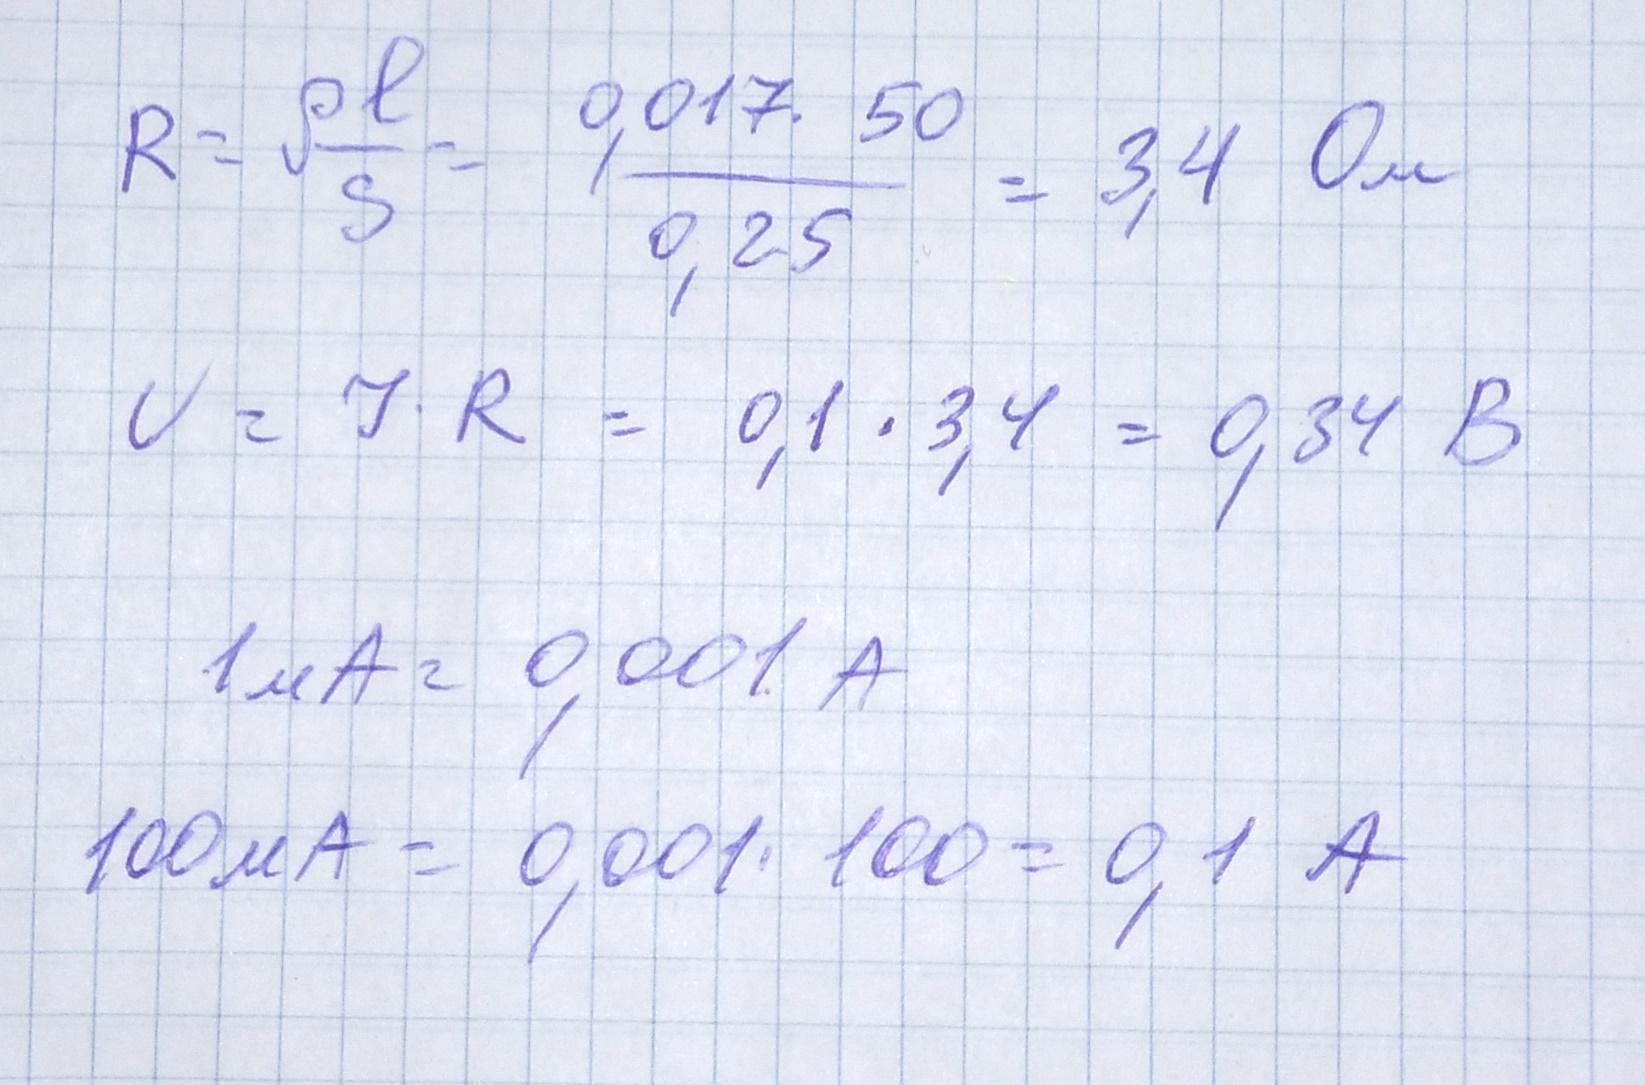 R = ρ l/S = 0,017 · 50 / 0,25 = 3,4 Ом
U = I · R = 0,1 · 3,4 = 0,34 В
1мА = 0,001 А
100мА = 0,001 · 100 = 0,1 А